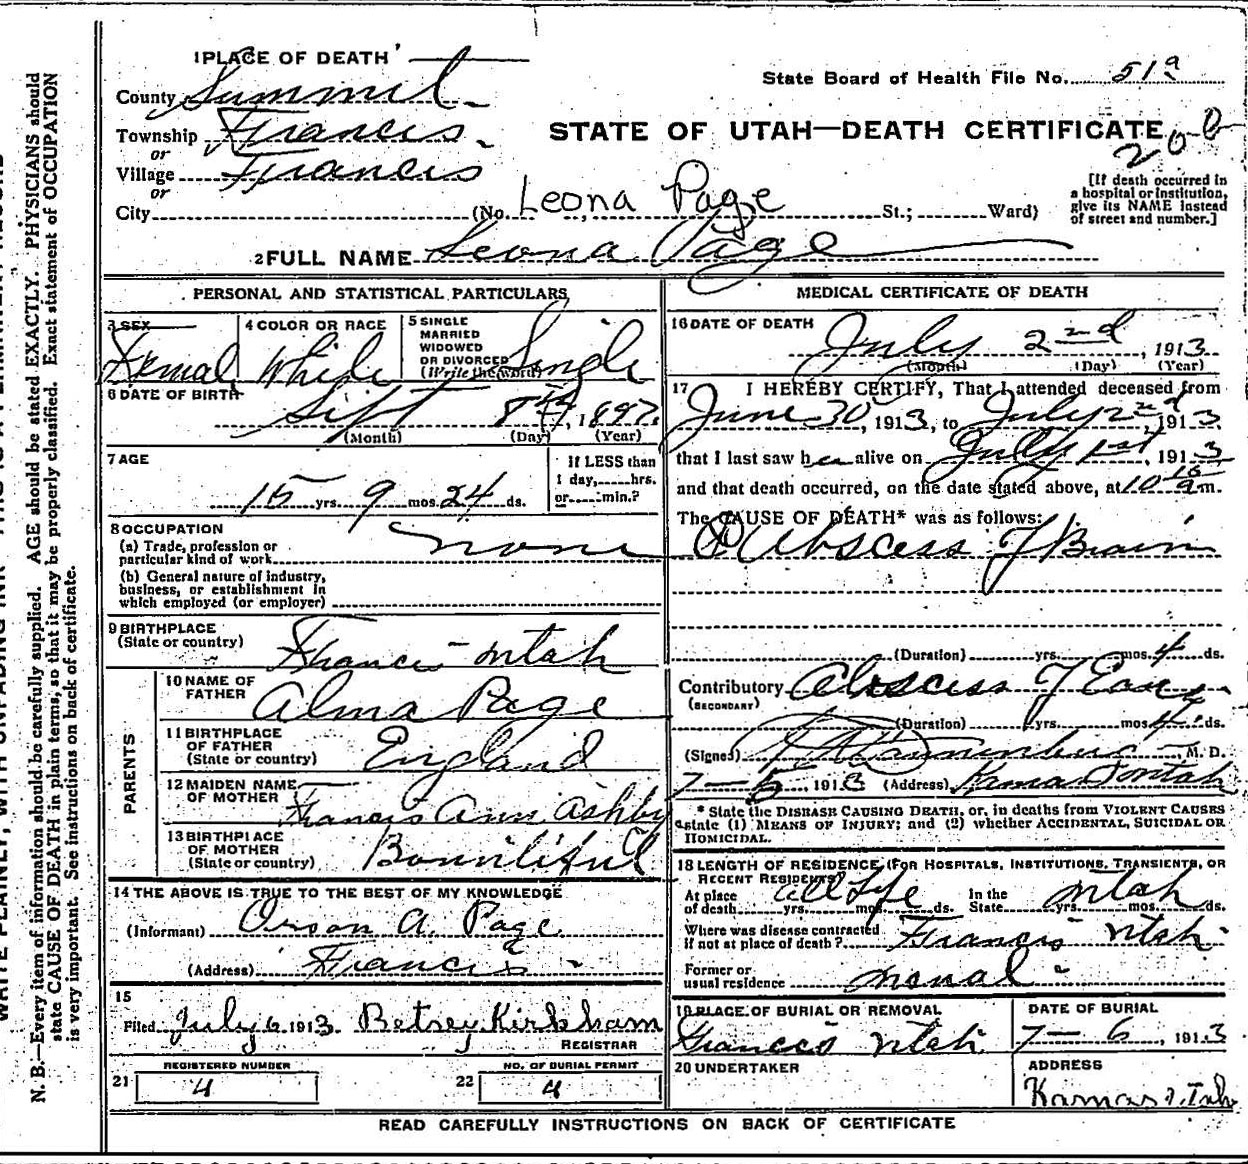 1 PLACE OF DEATH
County Summit
State Board of Health File No. 51a
Township Francis
or
STATE OF UTAH—DEATH CERTIFICATE
200
Village Francis
or
City (No. Leona Page St.; Ward)
[If death occurred in
a hospital or institution,
give its NAME instead
of street and number.]
2 FULL NAME Leona Page
PERSONAL AND STATISTICAL PARTICULARS
3 SEX
Femal
4 COLOR OR RACE
White
5 SINGLE
MARRIED
WIDOWED
OR DIVORCED
(Write the word)
Single
6 DATE OF BIRTH
Sept 8th, 1897
(Month) (Day) (Year)
7 AGE
15 yrs. 9 mos. 24 ds.
If LESS than
1 day, hrs.
or min.?
8 OCCUPATION
(a) Trade, profession or
particular kind of work none
(b) General nature of industry,
business, or establishment in
which employed (or employer)
9 BIRTHPLACE
(State or country)
Francis Utah
PARENTS
10 NAME OF
FATHER
Alma Page
11 BIRTHPLACE
OF FATHER
(State or country)
England
12 MAIDEN NAME
OF MOTHER
Francis Ann Ashby
13 BIRTHPLACE
OF MOTHER
(State or country)
14 THE ABOVE IS TRUE TO THE BEST OF MY KNOWLEDGE
(Informant) Orson A. Page
(Address) Francis
15
Filed July 6 1913 Betsey Kirkham
REGISTRAR
REGISTERED NUMBER
21 4
NO. OF BURIAL PERMIT
22 4
MEDICAL CERTIFICATE OF DEATH
16 DATE OF DEATH
July 2nd, 1913
(Month) (Day) (Year)
17 I HEREBY CERTIFY, That I attended deceased from
June 30, 1913, to July 2nd, 1913
that I last saw her alive on July 1st, 1913
and that death occurred, on the date stated above, at 10 a m.
The CAUSE OF DEATH* was as follows:
Abscess of Brain
(Duration) yrs. mos. 4 ds.
Contributory Abscess of Ear
(SECONDARY)
(Duration) yrs. mos. 4 ds.
(Signed) M. D.
7-5, 1913 (Address) Kamas Utah
* State the DISEASE CAUSING DEATH, or, in deaths from VIOLENT CAUSES
state (1) MEANS OF INJURY; and (2) whether ACCIDENTAL, SUICIDAL OR
HOMICIDAL.
18 LENGTH OF RESIDENCE (FOR HOSPITALS, INSTITUTIONS, TRANSIENTS, OR
RECENT RESIDENTS)
At place
of death all life yrs. mos. ds.
In the
State Utah yrs. mos. ds.
Where was disease contracted
if not at place of death? Francis Utah
Former or
usual residence
19 PLACE OF BURIAL OR REMOVAL
Francis Utah
DATE OF BURIAL
7-6, 1913
20 UNDERTAKER
ADDRESS
Kamas
READ CAREFULLY INSTRUCTIONS ON BACK OF CERTIFICATE
N. B.—Every item of information should be carefully supplied. AGE should be stated EXACTLY. PHYSICIANS should
state CAUSE OF DEATH in plain terms, so that it may be properly classified. Exact statement of OCCUPATION
is very important. See instructions on back of certificate.